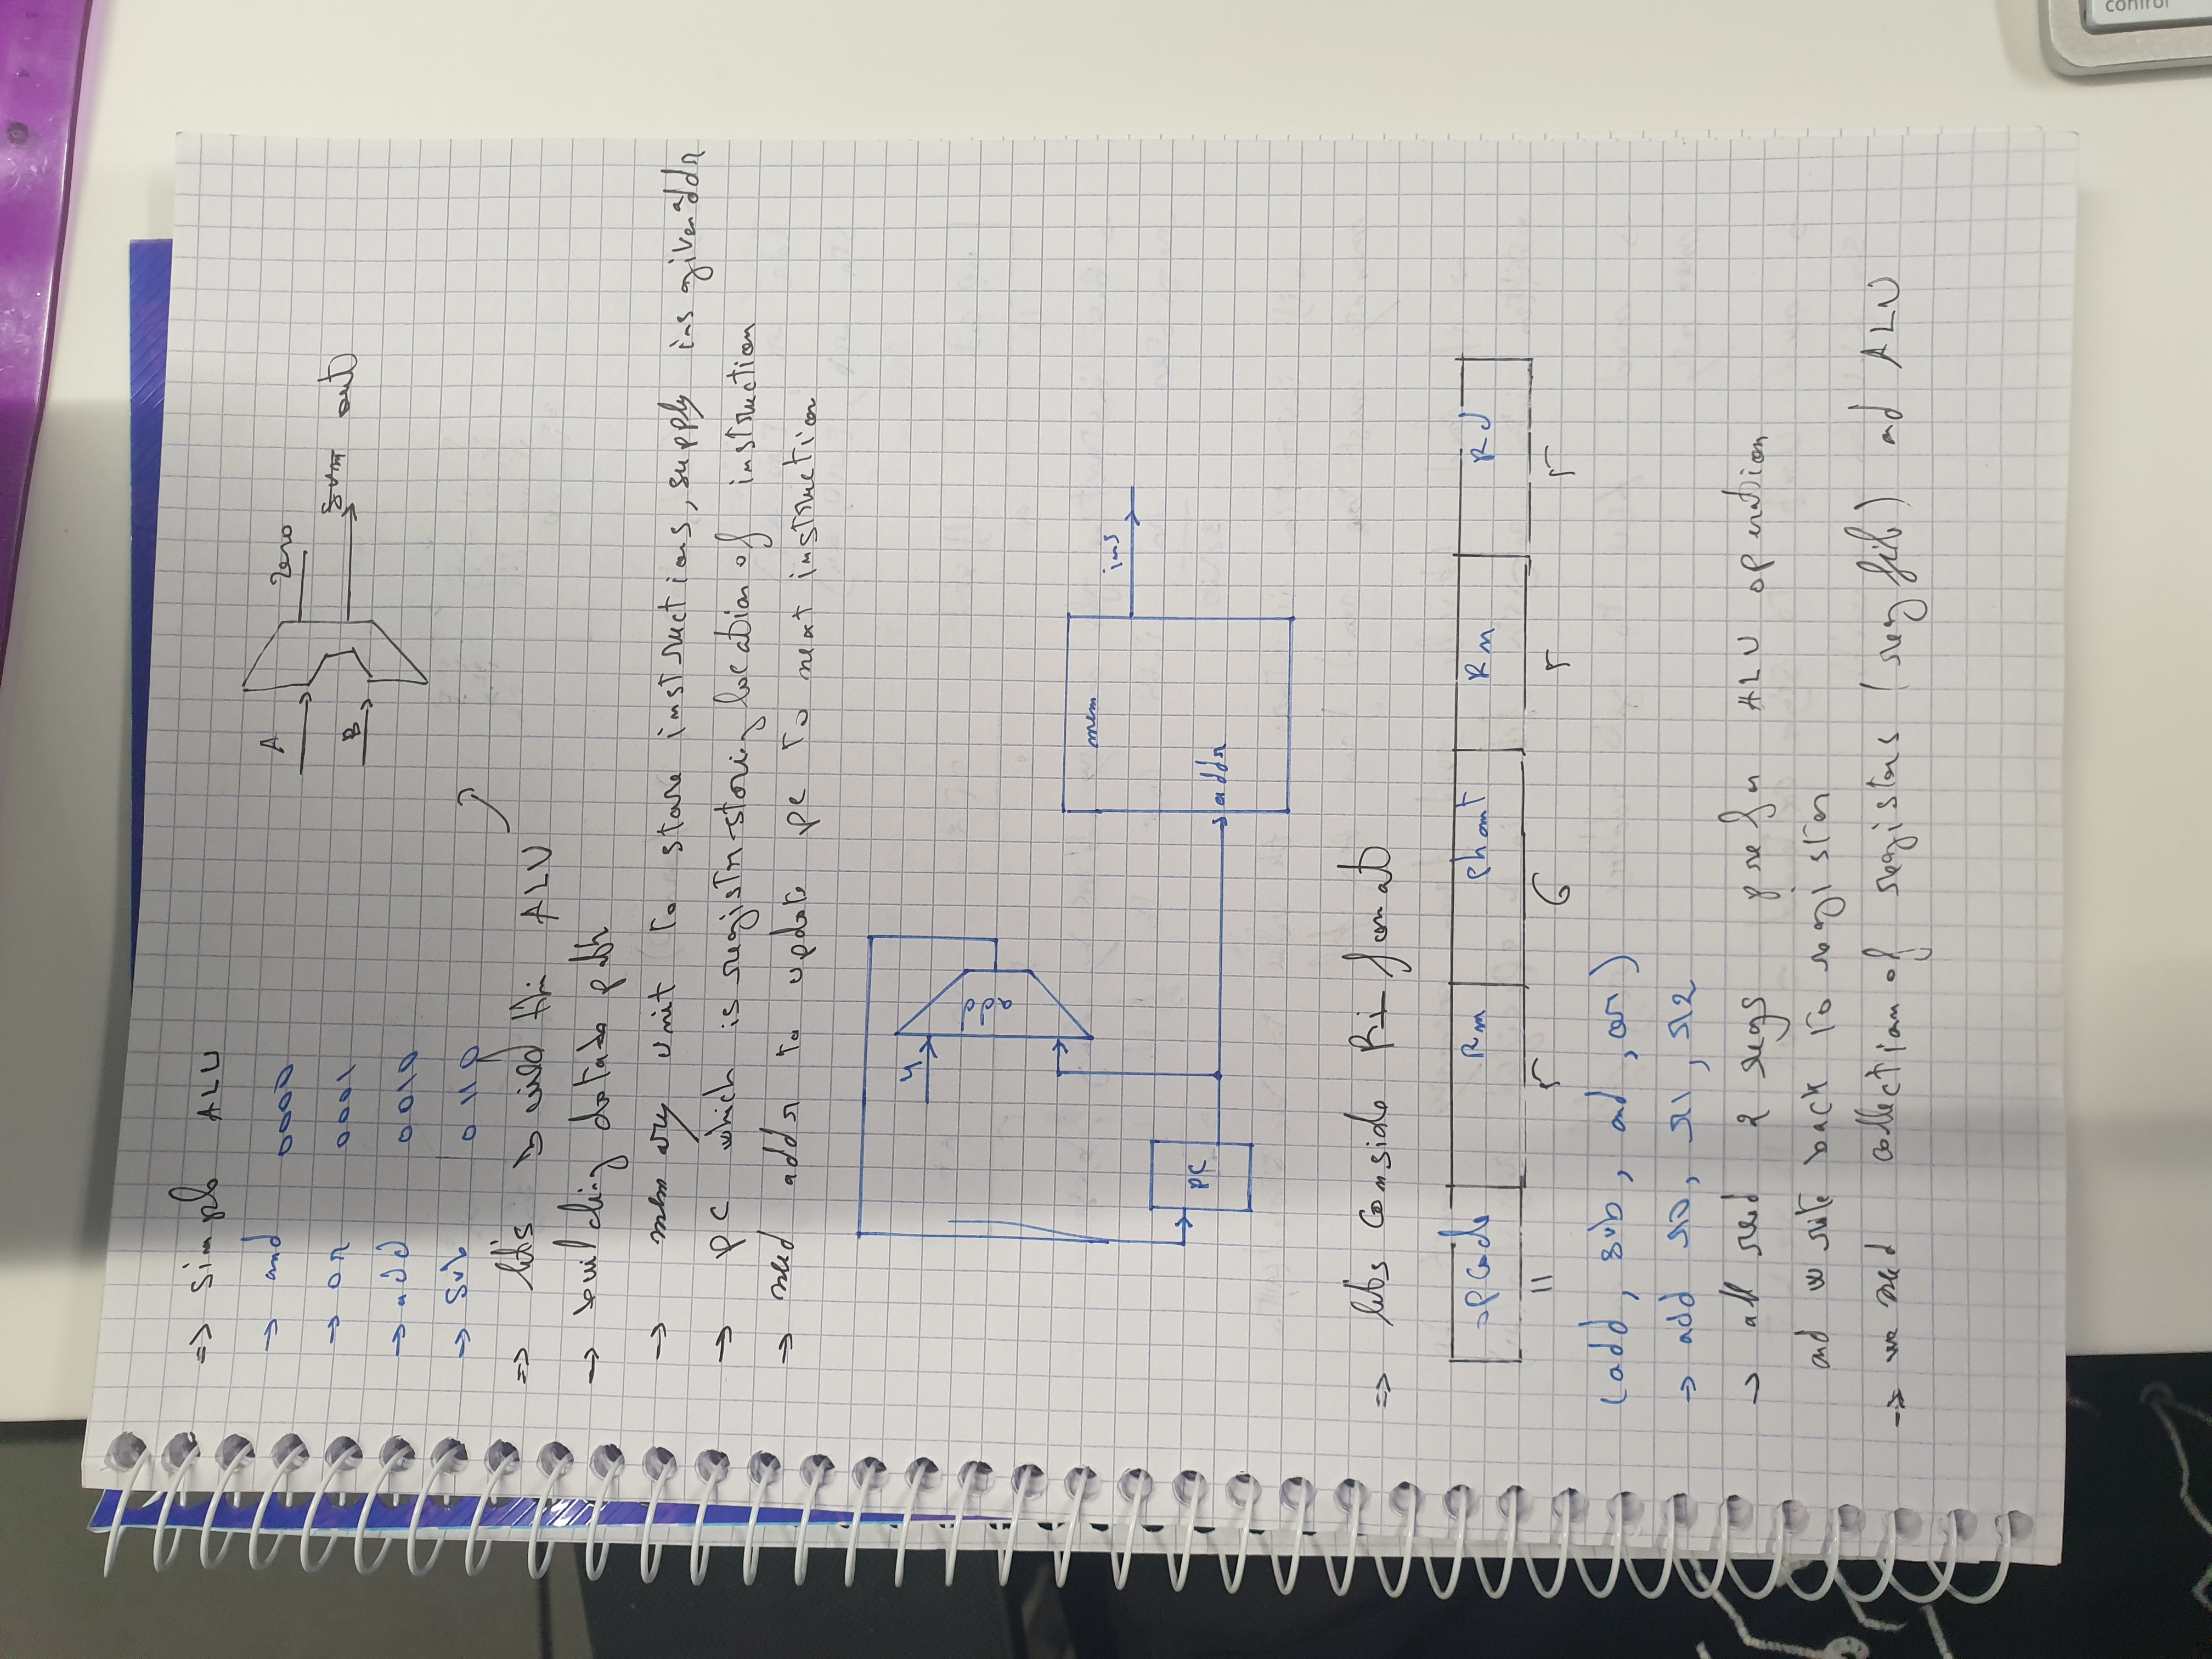 => Simple ALU
→ and 0000
→ or 0001
→ add 0010
→ sub 0110
A
B
zero
sum out
=> lets build thi ALU
→ building datada path
→ memory unit to store instructions, supply ins given addr
→ PC which is register storing location of instruction
→ need adder to update pc to next instruction
4
add
PC
mem
addr
ins
=> lets conside Ri format
opcode Rm shamt Rn Rd
11 5 6 5 5
(add, sub, and, or)
→ add r0, r1, r2
→ all read 2 regs ALU operation
and write back to register
→ we need collection of registers (reg file) and ALU
control